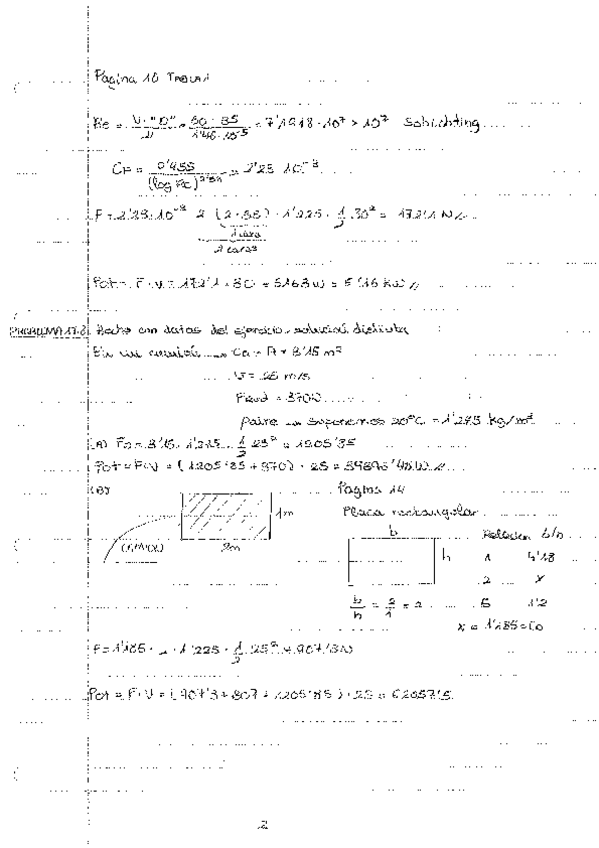 Página 10 TABLAS
Re = V·"D" / ν = 30·35 / 1'46·10⁻⁵ = 7'1918·10⁷ > 10⁷ Schlichting
CF = 0'455 / (log Re)²'⁵⁸ = 2'25·10⁻³
F = 2'25·10⁻³ · 2 · (2·35) · 1'225 · 1/2 · 30² = 172'1 N
1 cara
2 caras
Pot = F·V = 172'1 · 30 = 5163 W = 5'16 kW
PROBLEMA 17.2. Hecho con datos del ejercicio, solución distinta
En un camión → · A = 3'15 m²
V = 25 m/s
= 370 N
ρaire → suponemos 20°C = 1'225 kg/m³
(A) = 3'15 · 1'225 · 1/2 · 25² = 1205'85
Pot = F·V = (1205'85 + 370) · 25 = 39396'4 W
(B)
Página 14
1m
Placa rectangular
CAMIÓN
2m
b
h
Relación b/h
1 1'18
2 x
b/h = 2/1 = 2
5 1'2
x = 1'185 = CD
F = 1'185 · 2 · 1'225 · 1/2 · 25² = 907'3 N
Pot = F·V = (907'3 + + 1205'85) · 25 = 62057'5
2